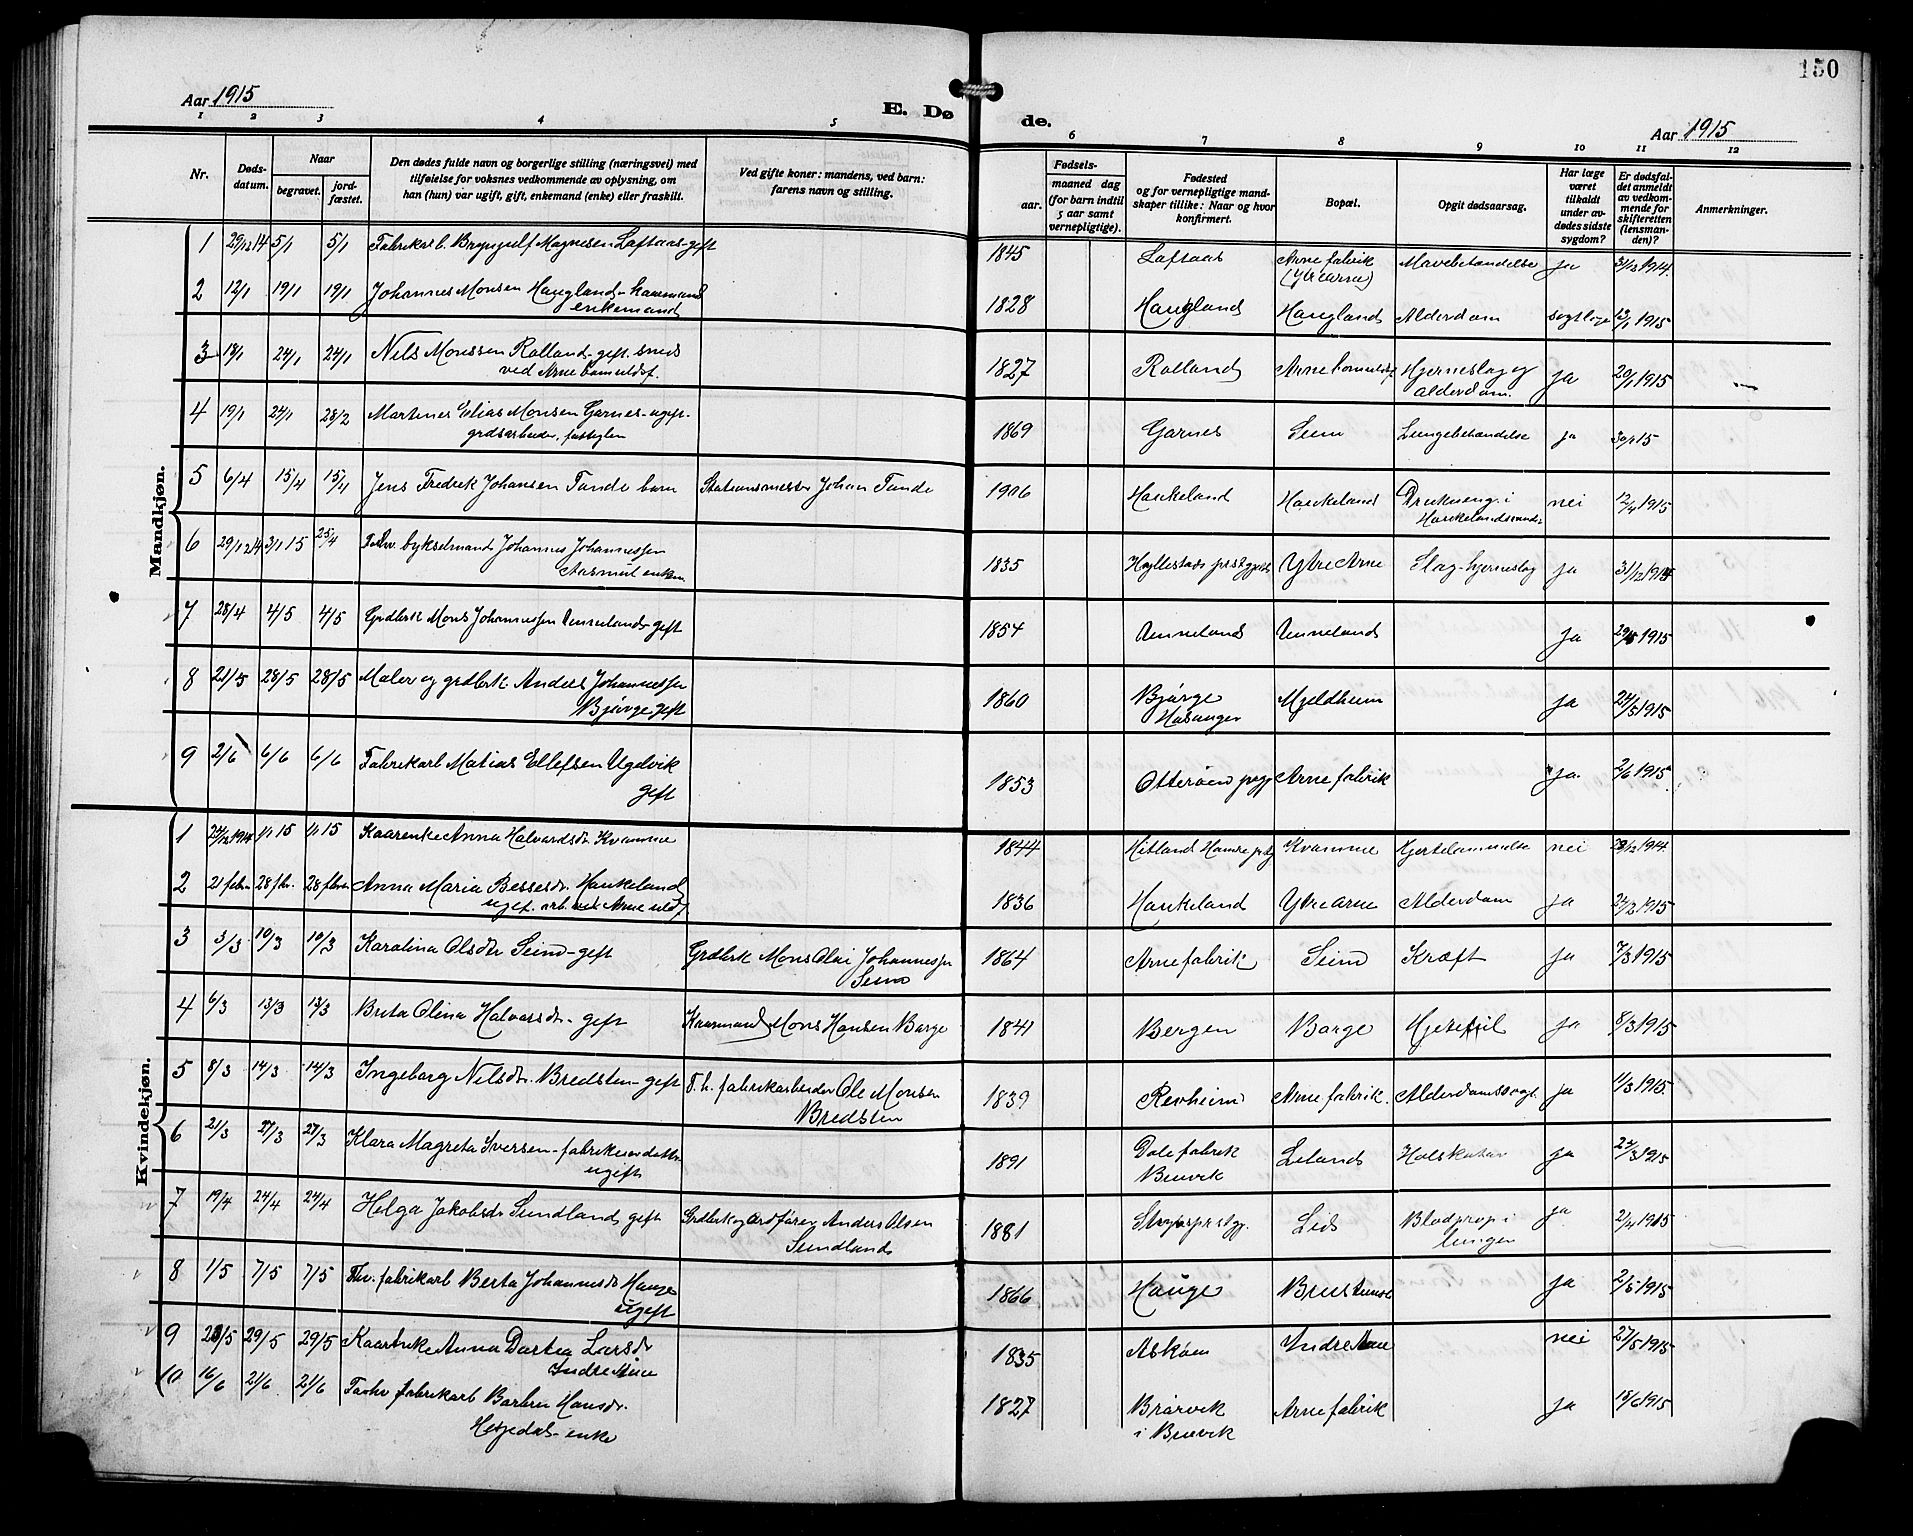 150
Aar 1915
E. Dø
de.
Aar 1915
1 2 3 4 5 6 7 8 9 10 11 12
Nr.
Døds-
datum.
Naar
begravet.
jord-
fæstet.
Den dødes fulde navn og borgerlige stilling (næringsvei) med
tilføielse for voksnes vedkommende av oplysning, om
han (hun) var ugift, gift, enkemand (enke) eller fraskilt.
Ved gifte koner: mandens, ved barn:
farens navn og stilling.
Fødsels-
aar.
maaned dag
(for barn indtil
5 aar samt
vernepligtige).
Fødested
og for vernepligtige mand-
skaper tillike: Naar og hvor
konfirmert.
Bopæl.
Opgit dødsaarsag.
Har læge
været
tilkaldt
under av-
dødes sidste
sygdom?
Er dødsfal-
det anmeldt
av vedkom-
mende for
skifteretten
(lensman-
den)?
Anmerkninger.
Mandkjøn.
1 29/12 14 5/1 5/1 Fabrikarb. Brynjulf Magnesen Loftaas gift 1845 Loftaas Arne fabrik Mavebetændelse ja 31/12 1914
(Ytre Arne)
2 12/1 19/1 19/1 Johannes Monsen Haugland - kaarmand 1828 Haugland Haugland Alderdom 13/1 1915
enkemand
3 18/1 24/1 24/1 Nils Monssen Rolland - gift. 1827 Rolland Hjerneslag og ja 20/1 1915
ved Arne alderdom.
4 19/1 24/1 28/2 Martines Elias Monsen Garnes - ugift. 1869 Garnes Seim Lungebetændelse ja 30/1 15
grdsarbeider,
5 6/4 15/4 15/4 Jens Fredrik Johansen Tunde barn Stationsmester Johan Tunde 1906 Haukeland Haukeland Drukning i nei 12/4 1915
Haukelandsvandet
6 29/12 14 3/1 15 25/4 bykselmand Johannes Johannessen 1835 Hyllestads Ytre Arne Slag - hjerneslag ja 31/12 1914
enkem
7 28/4 4/5 4/5 Grdbrk Mons Johannessen Unneland gift 1854 Unneland Unneland ja 1915
8 21/5 28/5 28/5 Maler og grdbrk Anders Johannessen 1860 Bjørge Mjeldheim ja 24/5 1915
Bjørge gift Hosanger
9 2/6 6/6 6/6 Fabrikarb Matias Ellefsen Ugelvik 1853 Otterøen Arne fabrik ja. 2/6 1915
gift
Kvindekjøn.
1 24/12 1914 1/1 15 1/1 15 Kaarenke Anna Halvardsdr Kvamme 1844 Hitland Hamre Kvamme nei 28/12 1914.
2 21 febr. 28 fbr. 28 febr. Anna Maria Bessesdr. Haukeland 1836 Haukeland Ytre Arne Alderdom ja 22/2 1915
ugift. arb. ved Arne
3 3/3 10/3 10/3 Karolina Olsdtr Seim - gift Grdbrk Mons Olai Johannessen 1864 Arne fabrik Seim Kræft ja 7/3 1915
Seim
4 6/3 13/3 13/3 Brita Olina Halvorsdr - gift Kaarmand Mons Hansen Borge 1841 Bergen Borge Hjertefeil ja 8/3 1915
5 8/3 14/3 14/3 Ingeborg Nilsdr. Bredsten - gift T.h. fabrikarbeider Ole Monsen 1839 Revheim Arne fabrik. ja 11/3 1915
Bredsten
6 21/3 27/3 27/3 Klara Magreta Iversen - 1891 Dale fabrik Leland ja 22/3 1915
ugift Bruvik
7 19/4 24/4 24/4 Helga Jakobsdr Sundland gift Grdbrk og ordfører Anders Olsen 1881 Lid Blodprop i ja 2/4 1915
Sundland lungen
8 1/5 7/5 7/5 Thv. fabrikarb Berta Johannesdr Hauge 1866 Hauge ja 2/5 1915
ugift
9 29/5 29/5 Kaarenke Anna Dortea Larsdr 1835 Askøen Indre Arne nei 27/5 1915
Indre Arne
10 16/6 21/6 21/6 fabrikarb Barbru Hansdr. 1827 Brørvik Arne fabrik ja 18/6 1915
Hetjedal - enke i Bruvik